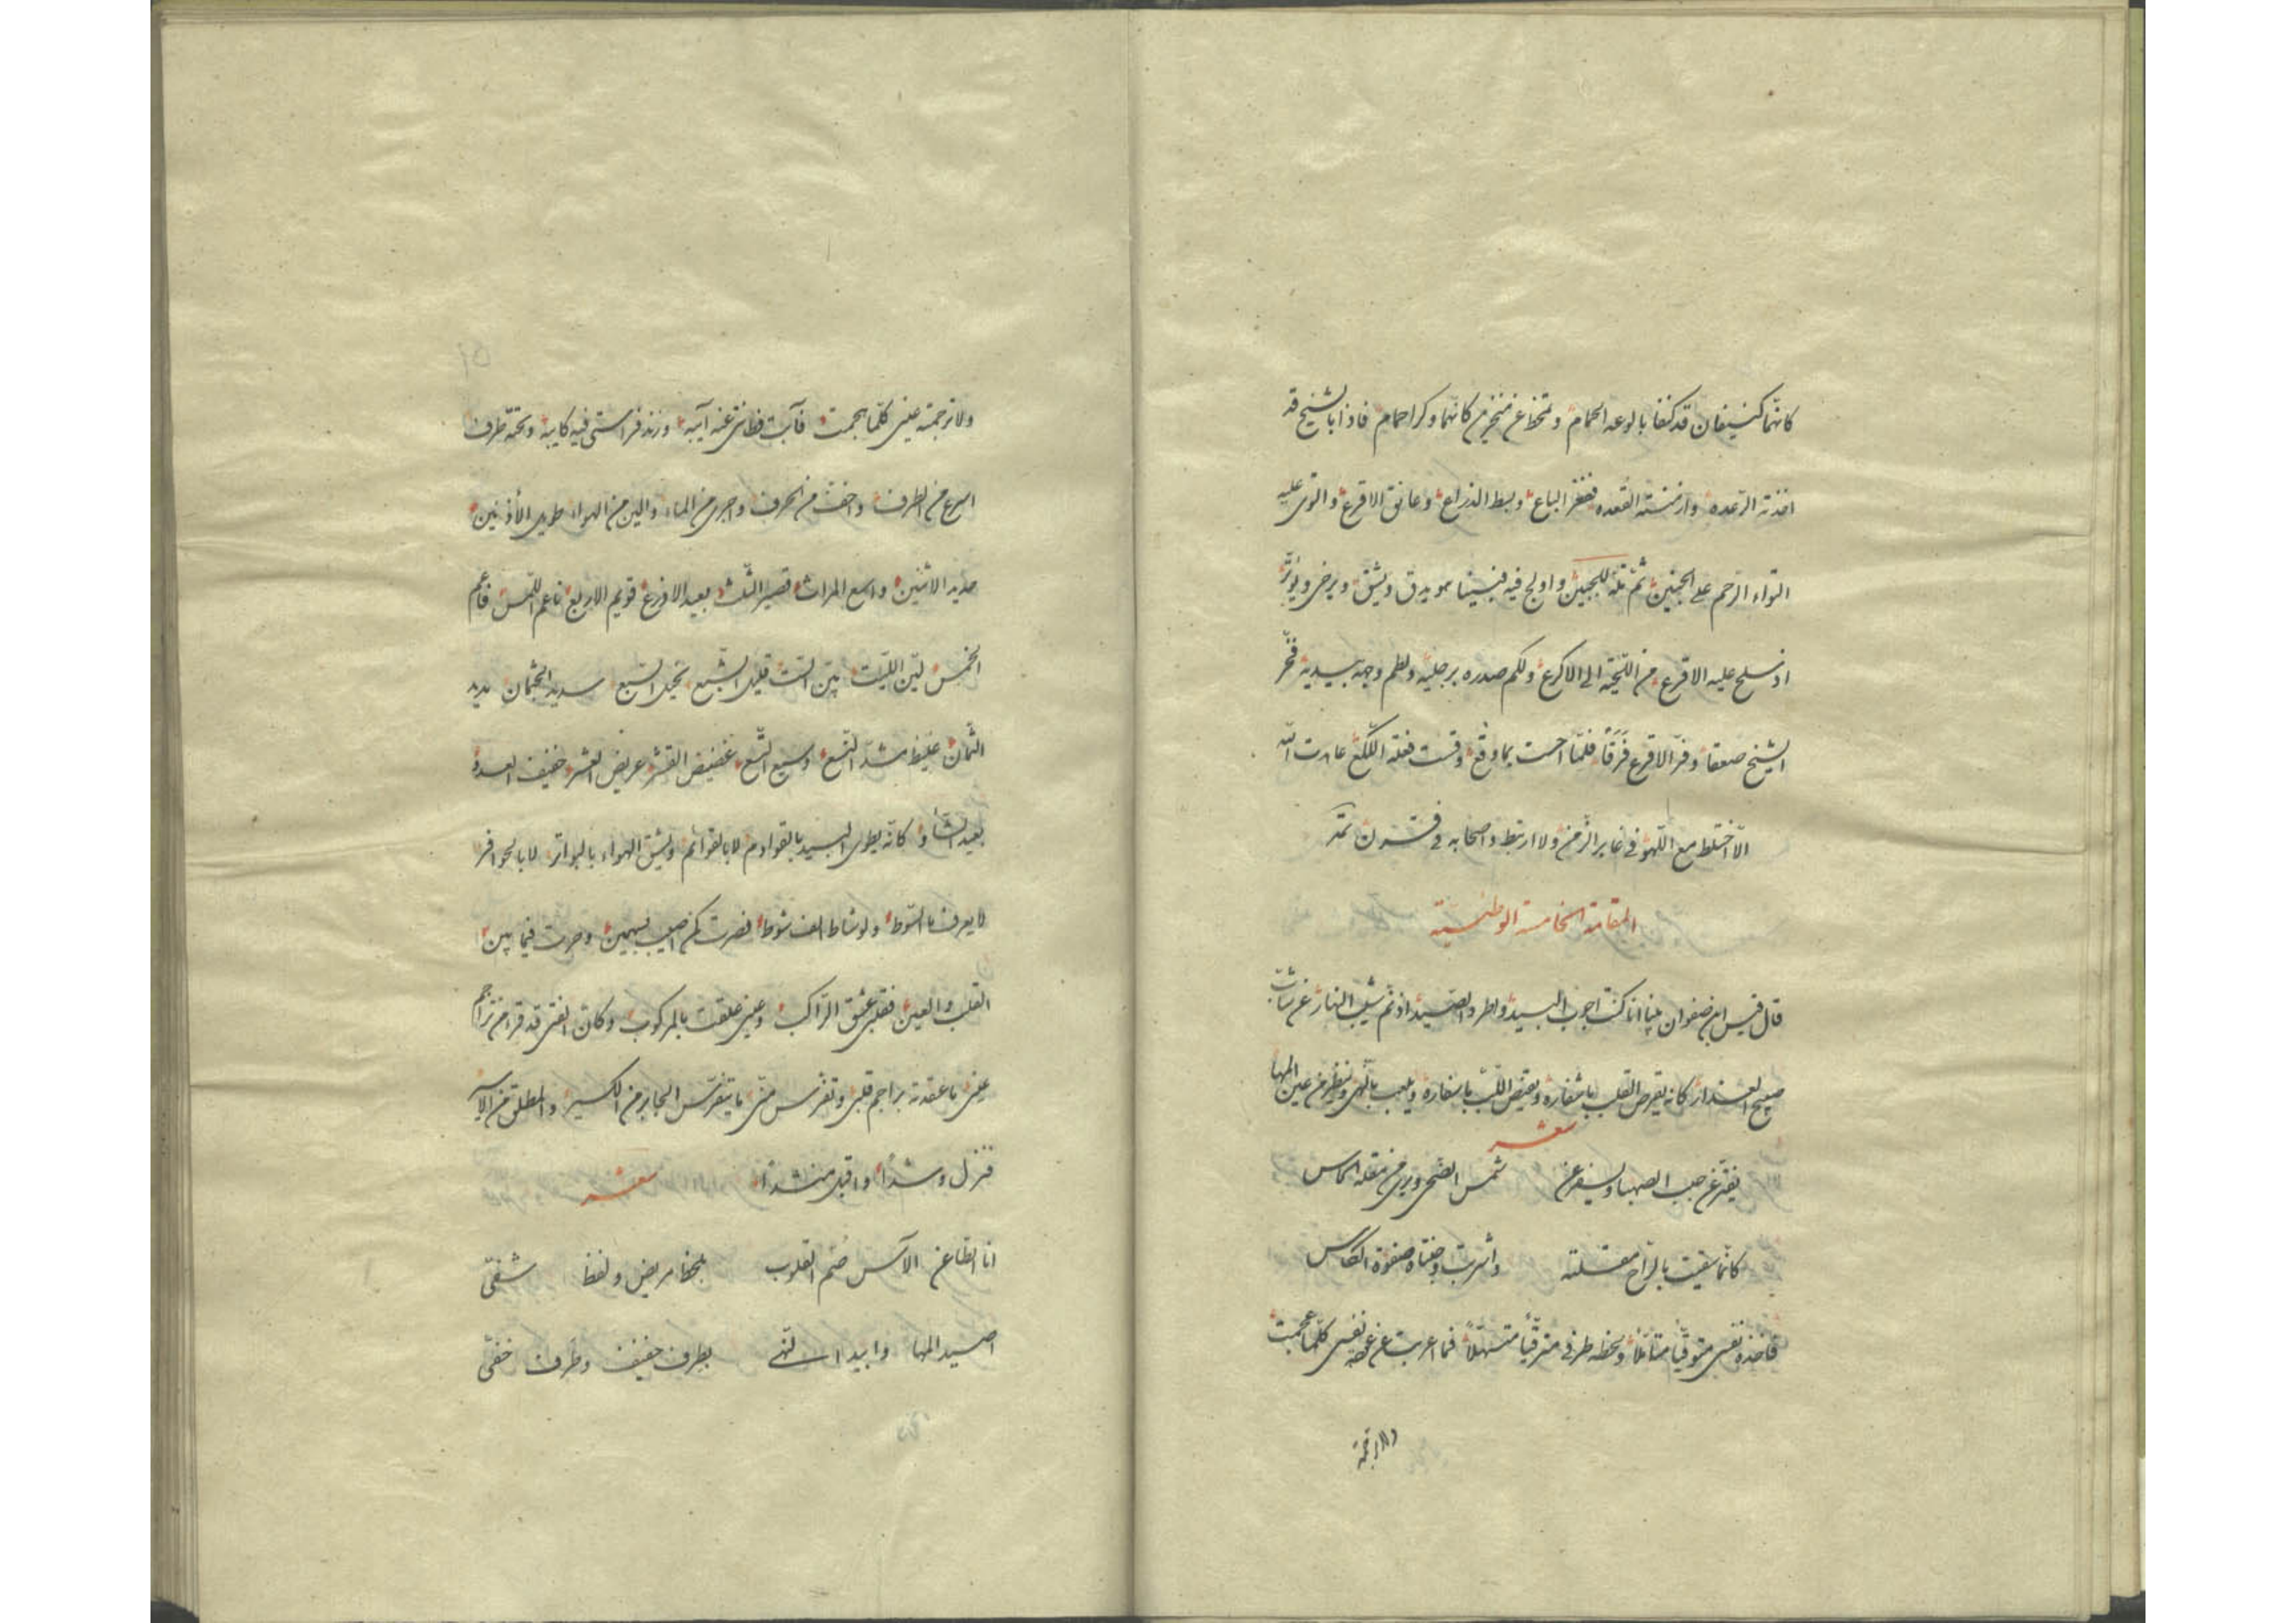 كانهما كنيفان قد كنفا بالوعه الحمام وتمخط عن منخرين كانهما وكرا حمام فاذا بالشيخ قد
اخذته الرعدة وازمنته القعده ففغر الباع وبسط الذراع وعانق الاقرع والتوى عليه
التواء الرحم على الجنين ثم تله للجبين واولج فيه فبينا هو يدق ويشق ويرخى ويوتر
اذ سلح عليه الاقرع من اللحية الى الاكرع ولكم صدره برجليه ولطم وجهه بيديه فخر
الشيخ صعقا وفر الاقرع فرقا فلما احست بما وقع وقست فعلة اللكع عاهدت الله
الا اختلط مع اللهو فى غابر الزمن ولا ارتبط واصحابه فى قرن تمت
المقامة الخامسة الوطنية
قال قيس ابن صفوان بينا انا كنت اجوب البيد واطرد الصيد اذ نم شيب النار عن شاب
صبيح العذار كانه يقرض القلب باشفاره ويقبض اللب باسفاره ويلعب بالنهى وينظر من عين المها
شعر
يفتر عن حبب الصهبا ويسفر عن شمس الضحى ويرى من مقلة الكاس
كانما سقيت بالراح مقلته واشربت وجنتاه صفوة الكاس
فاخذه نفسى متوقيا متأملا ولحظه طرفى مترقبا متسهلا فما اعربت عن غصه نفسى كلما عجمت
ولا ترجمته
ولا ترجمته عينى كلما هجمت فآبت فطانتى عنه آيبة وزند فراستى فيه كابية وتحته طرف
اسرع من الطرف واخف من الحرف واجرى من الماء والين من الهواء طويل الأذنين
مديد الاثنين واسع المراث قصير الثلث بعيد الاذرع قويم الاربع ناعم اللمس فاعم
الخمس لين الليت بين الست قليل الشبع نحيل السبع سديد الجثمان مديد
الثمان غليظ مشد النسع وسيع التسع غضيض القشر عريض العشر خفيف العدو
بعيد الشأو كانه يطوى البيد بالقوادم لا بالقوائم ويشق الهواء بالبواتر لا بالحوافر
لا يعرف ما السوط ولو شاط الف شوط فصرت كمن اصيب بسهمين وحرت فيما بين
القلب والعين فقلبى عشق الراكب وعينى علقت بالمركوب وكان الفتى قد قرا من تراجم
عينى ما عقدته براجم قلبى وتفرس منى ما يتفرس الجابر من الكسير والمطلق من الاسير
فنزل وشدا واقبل منشدا شعر
انا الطاعن الآس ضم القلوب بلحظ مريض ولفظ شفى
اصيد المها وابيد النهى بطرف خفيف وطرف خفى